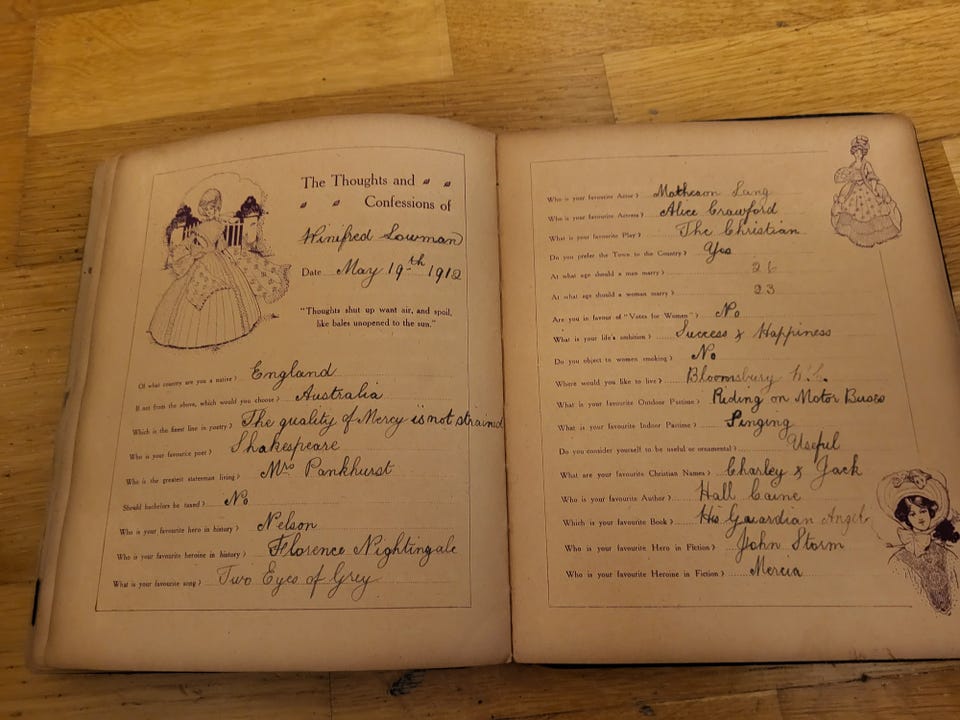 The Thoughts and
Confessions of
Winifred Lowman
Date May 19th 1912
"Thoughts shut up want air, and spoil,
like bales unopened to the sun."
Of what country are you a native? England
If not from the above, which would you choose? Australia
Which is the finest line in poetry? The quality of Mercy is not strained
Who is your favourite poet? Shakespeare
Who is the greatest statesman living? Mrs Pankhurst
Should bachelors be taxed? No
Who is your favourite hero in history? Nelson
Who is your favourite heroine in history? Florence Nightingale
What is your favourite song? Two Eyes of Grey
Who is your favourite Actor? Matheson Lang
Who is your favourite Actress? Alice Crawford
What is your favourite Play? The Christian
Do you prefer the Town to the Country? Yes
At what age should a man marry? 26
At what age should a woman marry? 23
Are you in favour of "Votes for Women"? No
What is your life's ambition? Success & Happiness
Do you object to women smoking? No
Where would you like to live? Bloomsbury W.C.
What is your favourite Outdoor Pastime? Riding on Motor Buses
What is your favourite Indoor Pastime? Singing
Do you consider yourself to be useful or ornamental? Useful
What are your favourite Christian Names? Charley & Jack
Who is your favourite Author? Hall Caine
Which is your favourite Book? His Guardian Angel
Who is your favourite Hero in Fiction? John Storm
Who is your favourite Heroine in Fiction? Mercia